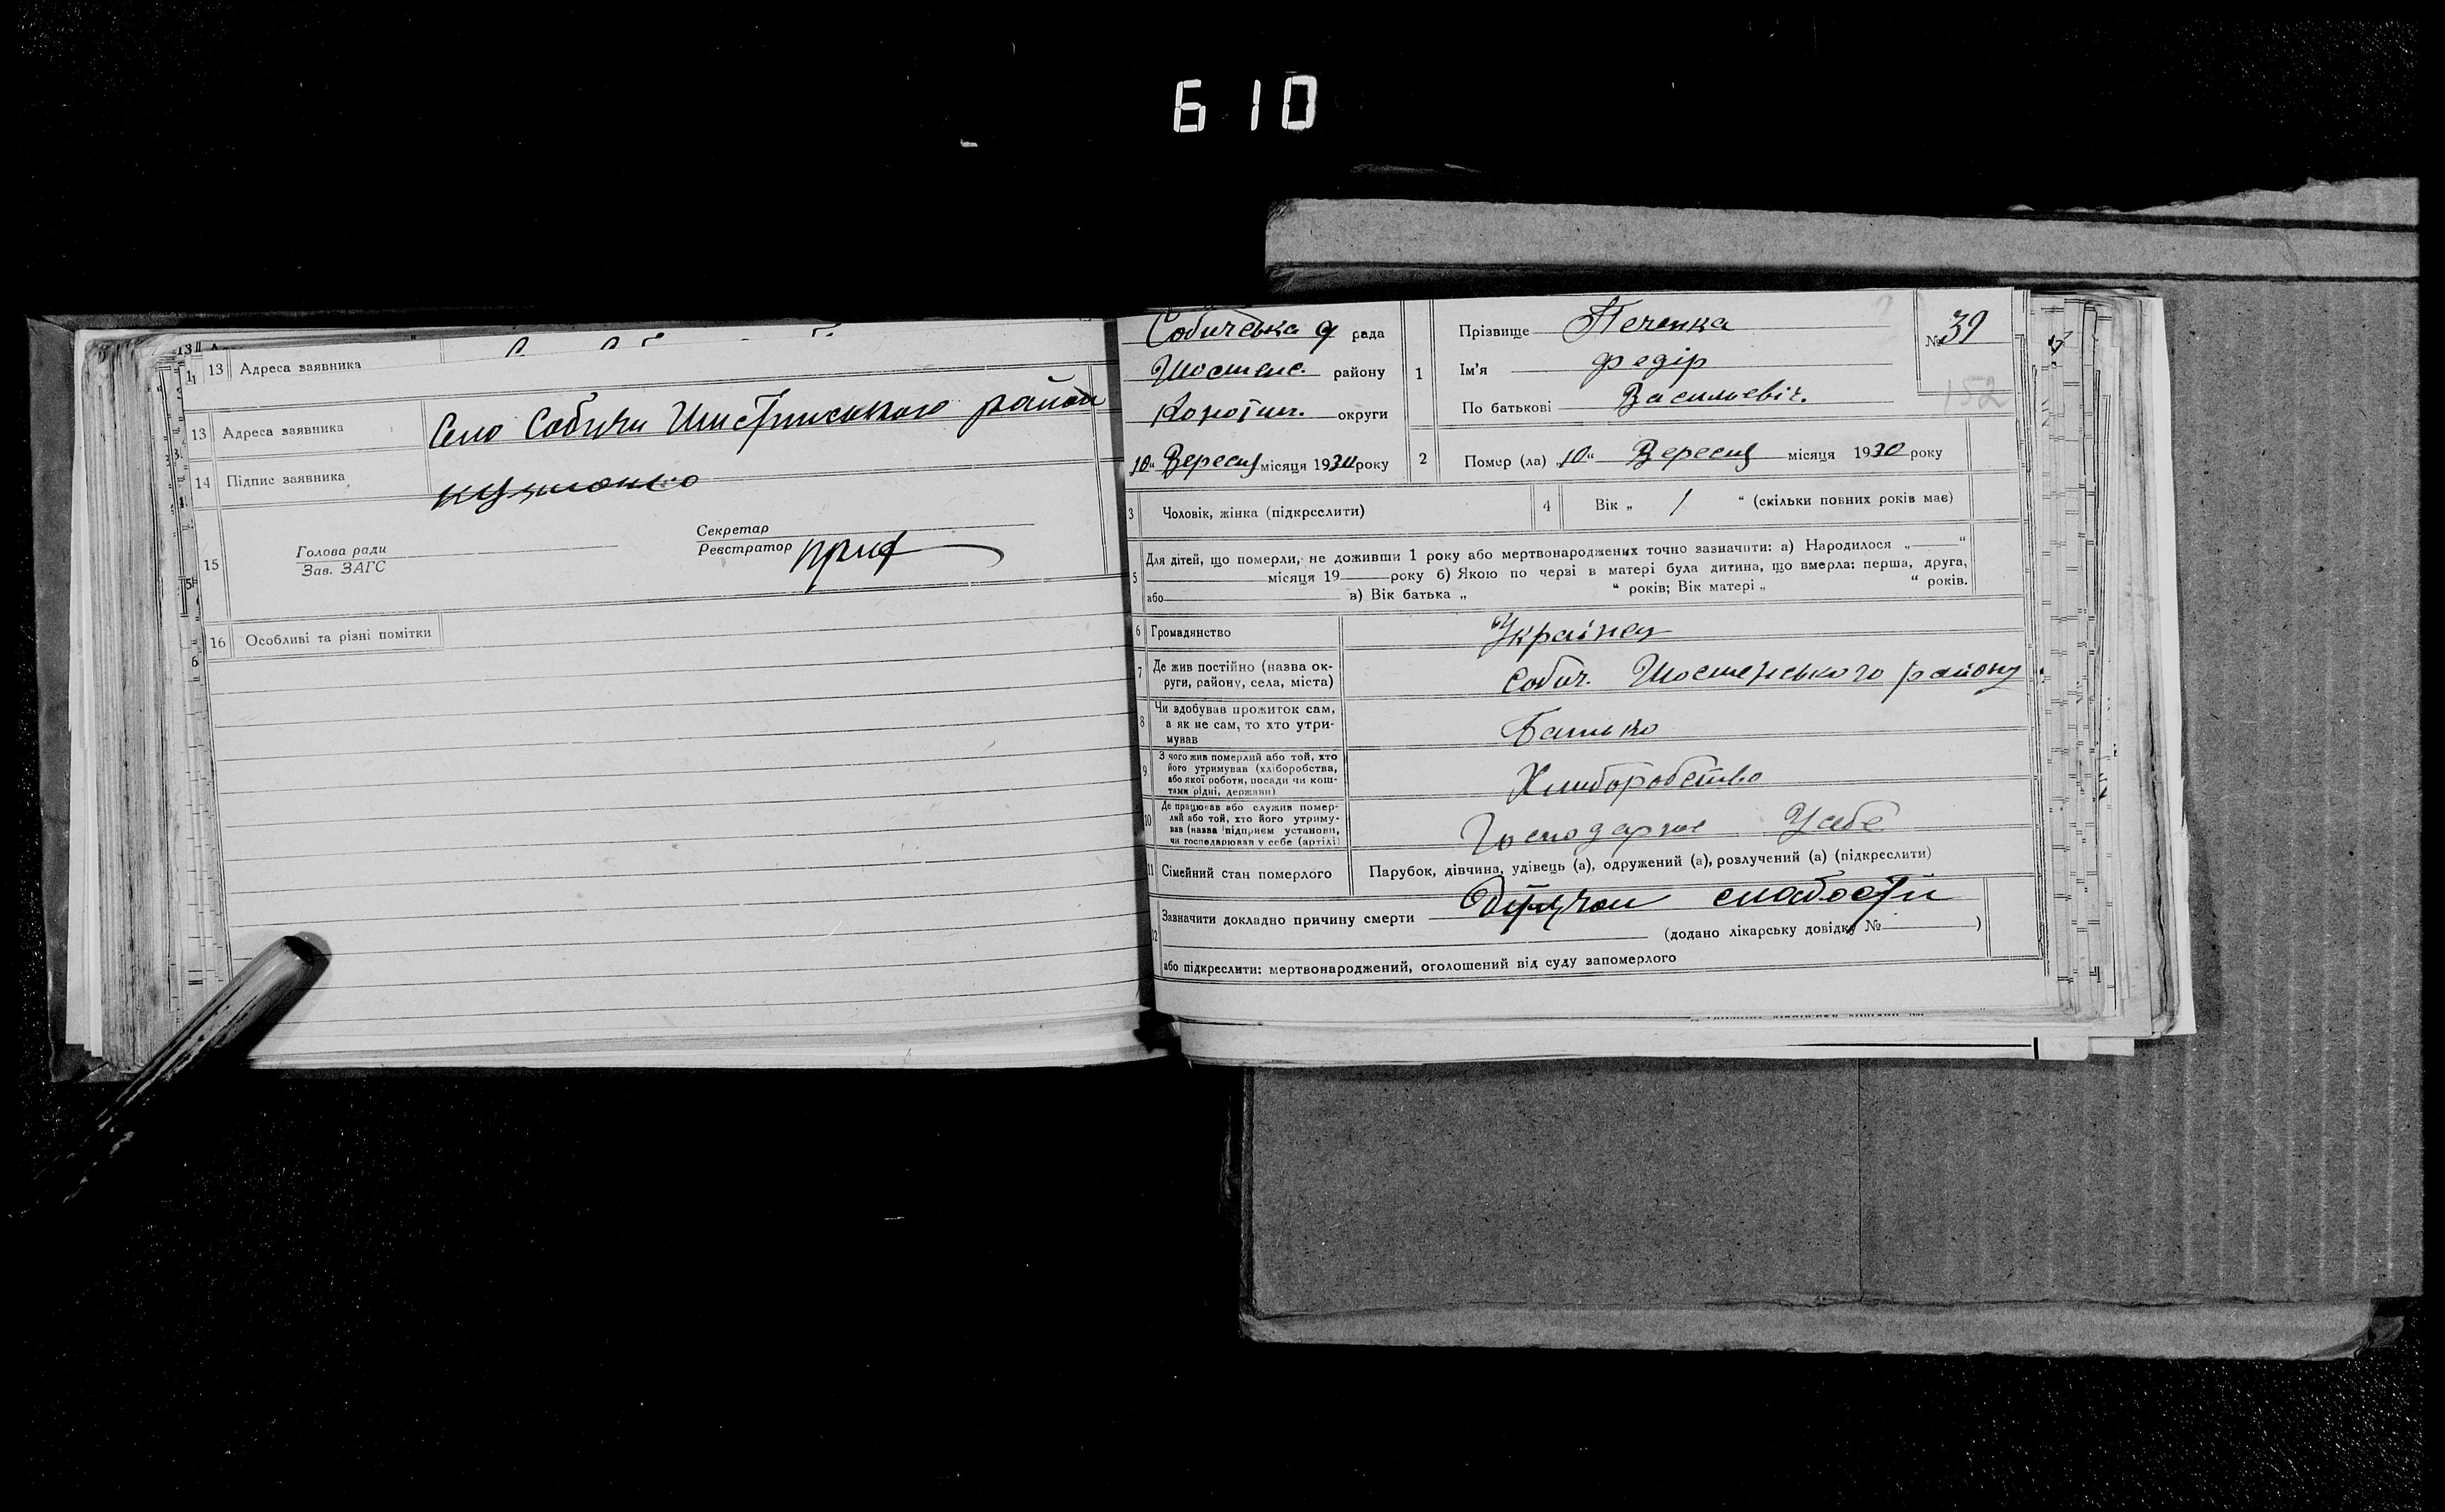 610
13 Адреса заявника
13 Адреса заявника Село Собичи Шостинського район
14 Підпис заявника
15 Голова ради
Зав. ЗАГС
Секретар
Реєстратор
16 Особливі та різні помітки
Собичська рада
Шостенс. району
Конотип. округи
10 " Вересня місяця 1930 року
1 Прізвище Печенка
Ім'я Федір
По батькові Васильевіч.
№ 39
152
2 Помер (ла) „ 10 " Вересня місяця 1930 року
3 Чоловік, жінка (підкреслити)
4 Вік „ 1 " (скільки повних років має)
5 Для дітей, що померли, не доживши 1 року або мертвонароджених точно зазначити: а) Народилося „ "
місяця 19 року б) Якою по черзі в матері була дитина, що вмерла: перша, друга,
або в) Вік батька „ " років; Вік матері „ " років.
6 Громадянство Українец
7 Де жив постійно (назва ок-
руги, району, села, міста) Собич. Шостенського району
8 Чи здобував прожиток сам,
а як не сам, то хто утри-
мував Батько
9 З чого жив померлий або той, хто
його утримував (хліборобства,
або якої роботи, посади чи кош-
тами рідні, держави) Хлиборобство
10 Де працював або служив помер-
лий або той, хто його утриму-
вав (назва підприєм установи,
чи господарював у себе (артілі) Господарює Усебе
11 Сімейний стан померлого Парубок, дівчина, удівець (а), одружений (а), розлучений (а) (підкреслити)
12 Зазначити докладно причину смерти слабости
(додано лікарську довідку № )
або підкреслити: мертвонароджений, оголошений від суду запомерлого